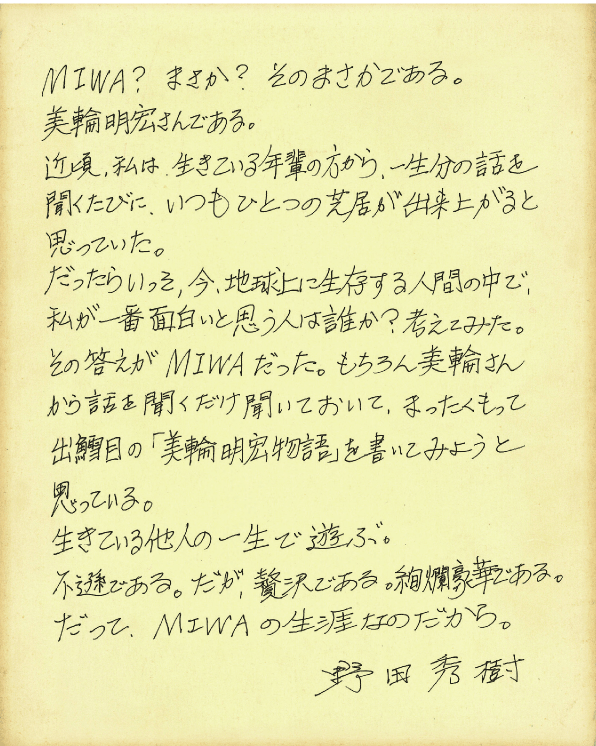 MIWA? まさか? そのまさかである。
美輪明宏さんである。
近頃、私は、生きている年輩の方から、一生分の話を
聞くたびに、いつもひとつの芝居が出来上がると
思っていた。
だったらいっそ、今、地球上に生存する人間の中で、
私が一番面白いと思う人は誰か?考えてみた。
その答えがMIWAだった。もちろん美輪さん
から話を聞くだけ聞いておいて、まったくもって
出鱈目の「美輪明宏物語」を書いてみようと
思っている。
生きている他人の一生で遊ぶ。
不遜である。だが、贅沢である。絢爛豪華である。
だって、MIWAの生涯なのだから。
野田秀樹